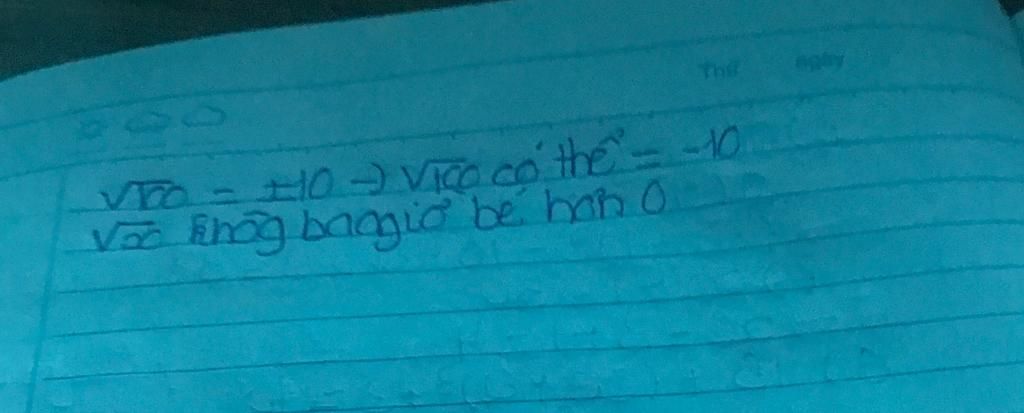 Thứ ngày
√100 = ±10 → √100 có thể = -10
√x không baogiờ bé hơn 0